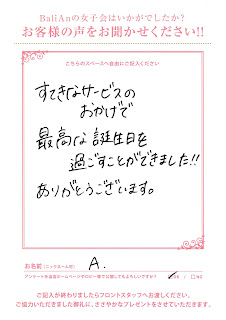 BaliAnの女子会はいかがでしたか?
お客様の声をお聞かせください!!
こちらのスペースへ自由にご記入ください
すてきなサービスの
おかげで
最高な誕生日を
過ごすことができました!!
ありがとうございます。
お名前(ニックネーム可) A.
アンケートを当店ホームページやブログ等で公開してもよろしいですか? YES / □NO
ご記入が終わりましたらフロントスタッフへお渡しください。
ご協力いただきました御礼に、ささやかなプレゼントをさせていただきます。